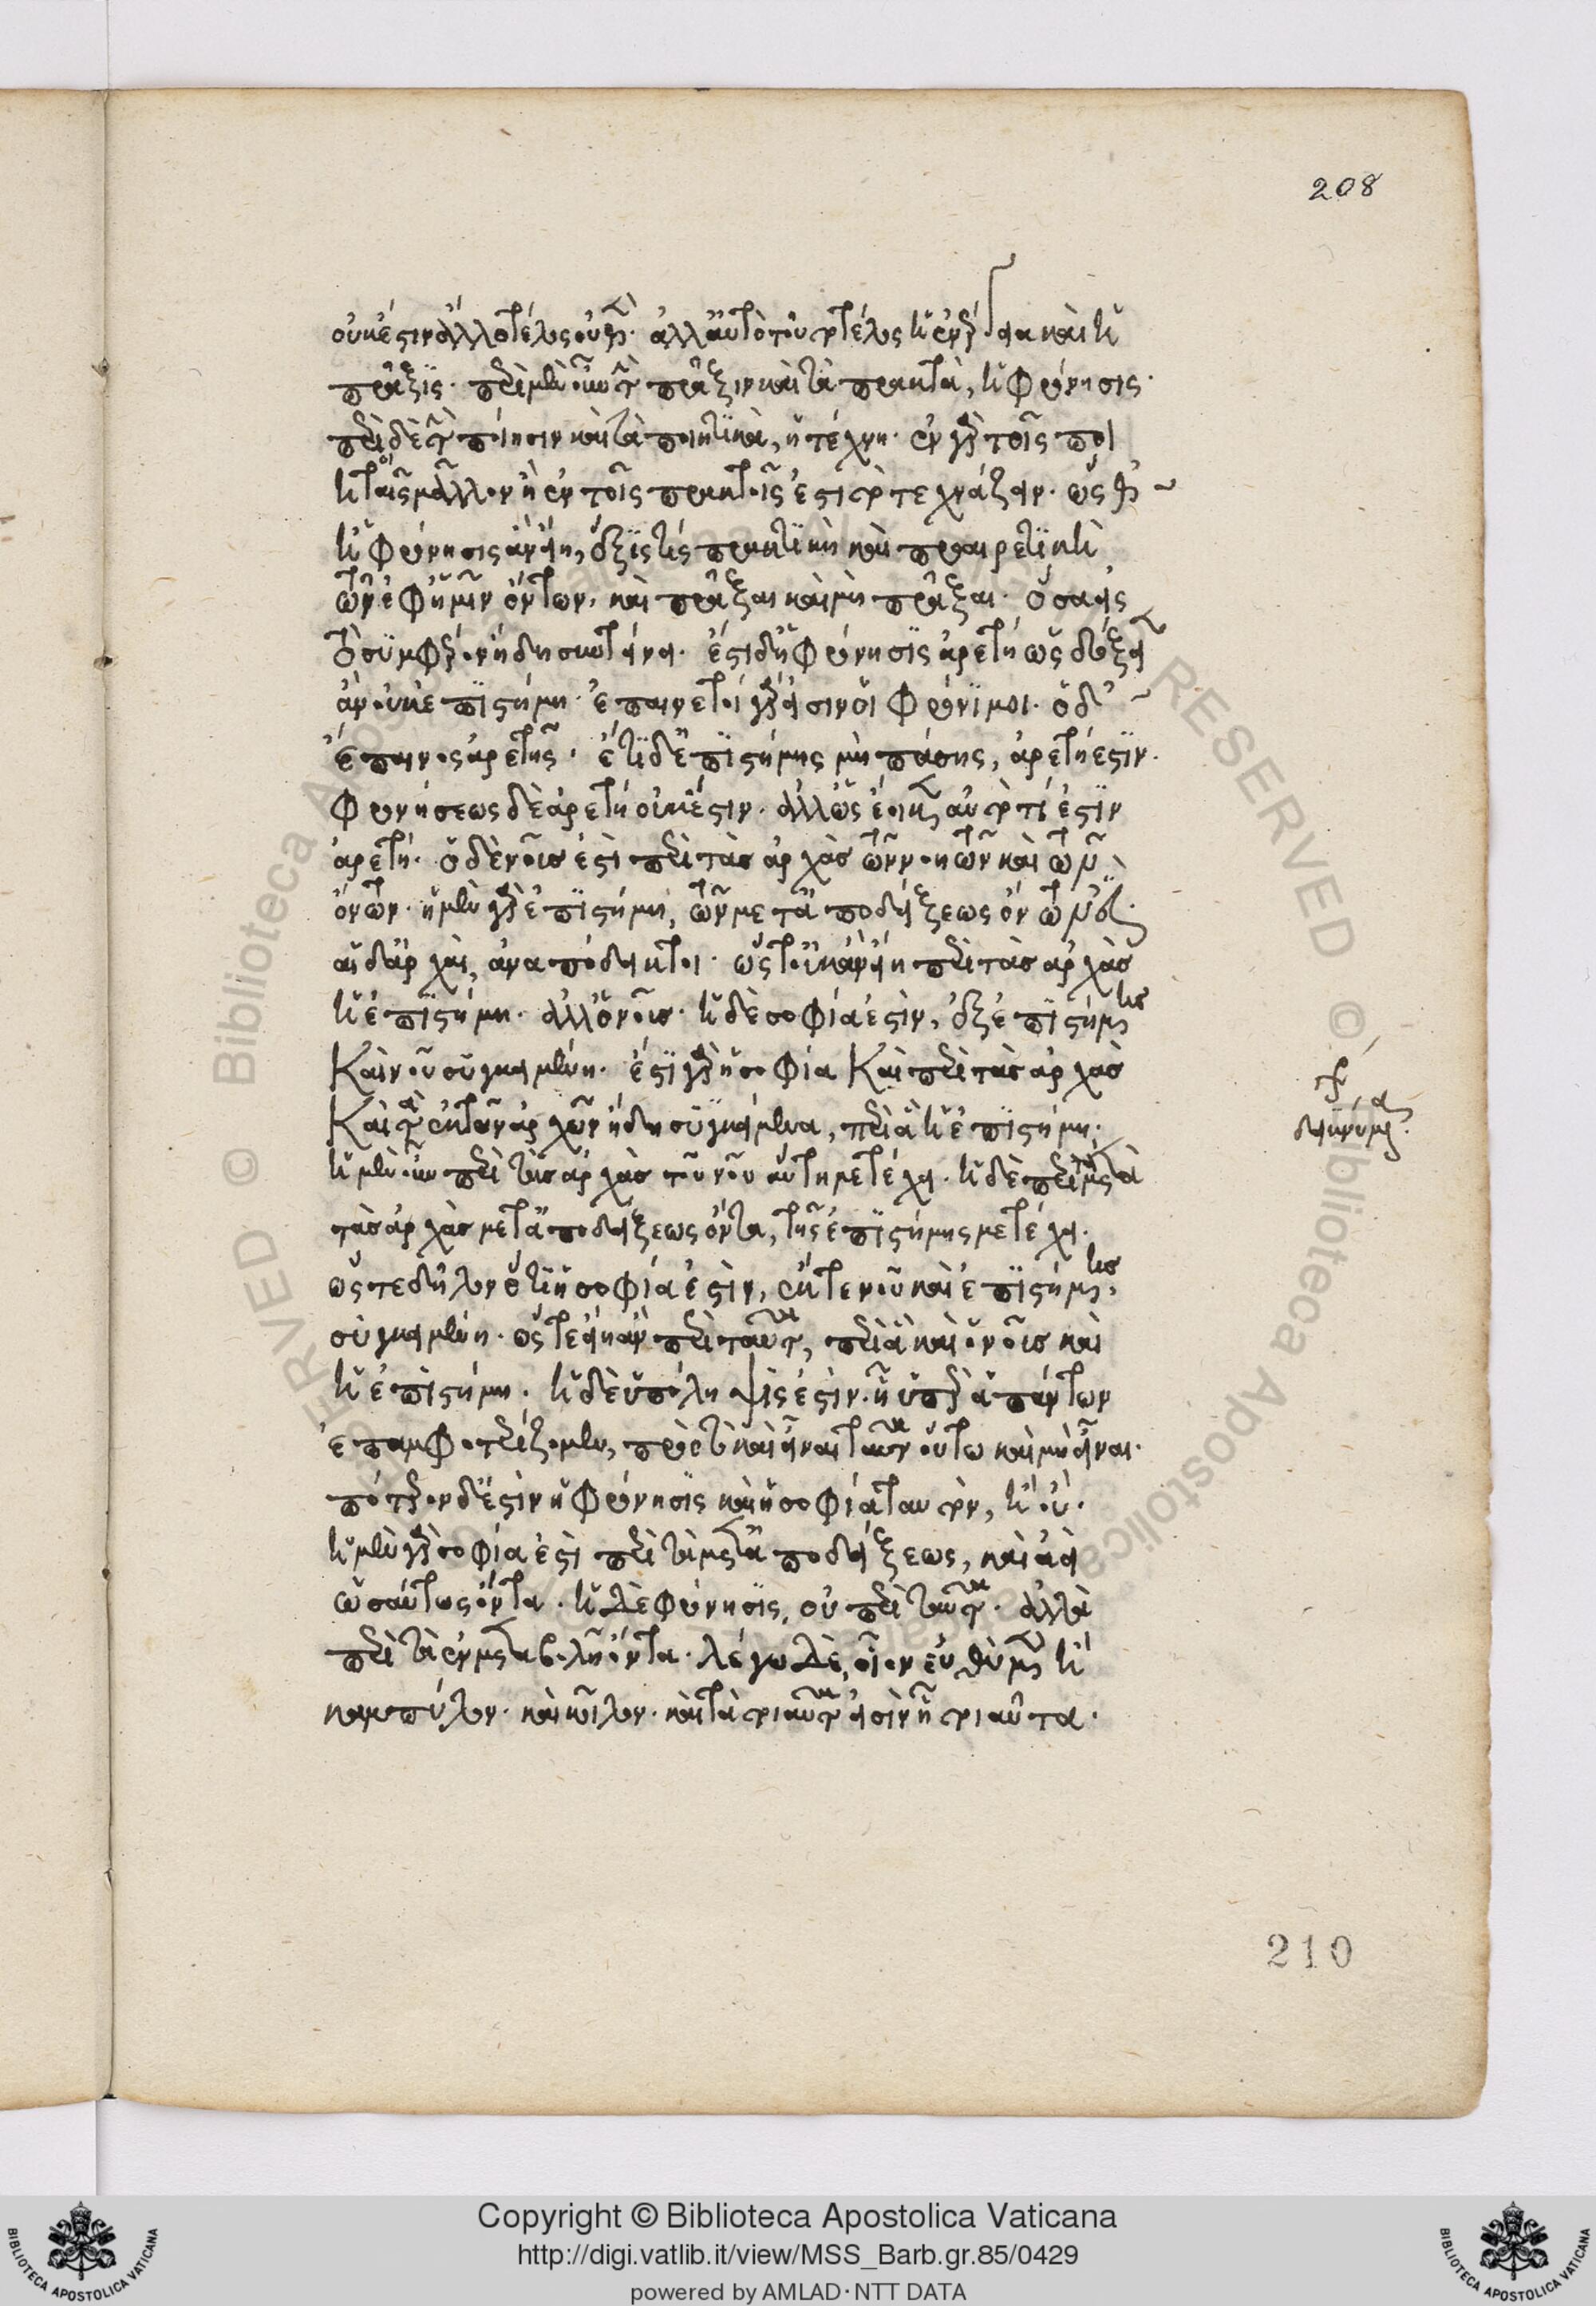 208
οὐκ ἔστιν ἄλλο τέλος οὐθὲν· ἀλλ' αὐτὸ τοῦτο τέλος ἡ ἐνέργεια καὶ ἡ
πρᾶξις· περὶ μὲν οὖν τὴν πρᾶξιν καὶ τὰ πρακτὰ, ἡ φρόνησις·
περὶ δὲ τὴν ποίησιν καὶ τὰ ποιητικὰ, ἡ τέχνη· ἐν γὰρ τοῖς ποι
ητοῖς μᾶλλον ἢ ἐν τοῖς πρακτοῖς ἐστι τὸ τεχνάζειν· ὥσθ'
ἡ φρόνησις ἂν εἴη, ἕξις τίς πρακτικὴ καὶ προαιρετικὴ
τῶν ἐφ' ἡμῖν ὄντων, καὶ πρᾶξαι καὶ μὴ πρᾶξαι· ὅσα εἰς
τὸ συμφέρον ἤδη συντείνει· ἔστι δ' ἡ φρόνησις ἀρετὴ ὡς δόξειεν
ἂν οὐκ ἐπιστήμη· ἐπαινετοὶ γὰρ εἰσιν οἱ φρόνιμοι· ὁ δ'
ἔπαινος ἀρετῆς· ἔτι δ' ἐπιστήμης μὴ πάσης, ἀρετή ἐστιν·
φρονήσεως δὲ ἀρετὴ οὐκ ἔστιν· ἀλλ' ὡς ἔοικεν αὐτό τί ἐστιν
ἀρετή· ὁ δὲ νοῦς ἐστὶ περὶ τὰς ἀρχὰς τῶν νοητῶν καὶ τῶν
ὄντων· ἡ μὲν γὰρ ἐπιστήμη, τῶν μετ' ἀποδείξεως ὄντων ἐστίν·
αἱ δ' ἀρχαὶ, ἀναπόδεικτοι· ὥστ' οὐκ ἂν εἴη περὶ τὰς ἀρχὰς
ἡ ἐπιστήμη· ἀλλ' ὁ νοῦς· ἡ δὲ σοφία ἐστὶν, ἐξ ἐπιστήμης
καὶ νοῦ συγκειμένη· ἔστι γὰρ ἡ σοφία καὶ περὶ τὰς ἀρχὰς
καὶ τὰ ἐκ τῶν ἀρχῶν ἤδη συγκείμενα, περὶ ἃ ἡ ἐπιστήμη·
δεικνύμενα·
ἡ μὲν οὖν περὶ τὰς ἀρχὰς τοῦ νοῦ αὕτη μετέχει· ἡ δὲ περὶ τὰ μετὰ
τὰς ἀρχὰς μετ' ἀποδείξεως ὄντα, τῆς ἐπιστήμης μετέχει·
ὥστε δῆλον ὅτι ἡ σοφία ἐστὶν, ἔκ τε νοῦ καὶ ἐπιστήμης
συγκειμένη· ὥστ' εἴη ἂν περὶ ταῦτα, περὶ ἃ καὶ ὁ νοῦς καὶ
ἡ ἐπιστήμη· ἡ δὲ ὑπόληψίς ἐστιν· ᾗ ὑπὲρ ἁπάντων
ἐπαμφοτερίζομεν, πρὸς τὸ καὶ εἶναι ταῦτα οὕτω καὶ μὴ εἶναι·
πότερον δ' ἐστὶν ἡ φρόνησις καὶ ἡ σοφία ταυτόν, ἢ οὔ·
ἡ μὲν γὰρ σοφία ἐστὶ περὶ τὰ μετ' ἀποδείξεως, καὶ ἀεὶ
ὡσαύτως ὄντα· ἡ δὲ φρόνησις, οὐ περὶ ταῦτα· ἀλλὰ
περὶ τὰ ἐν μεταβολῇ ὄντα· λέγω δὲ, οἷον εὐθὺ μὲν ἢ
καμπύλον· καὶ κοῖλον· καὶ τὰ τοιαῦτα εἰσὶν ᾗ τοιαῦτα·
210
Copyright © Biblioteca Apostolica Vaticana
http://digi.vatlib.it/view/MSS_Barb.gr.85/0429
powered by AMLAD·NTT DATA